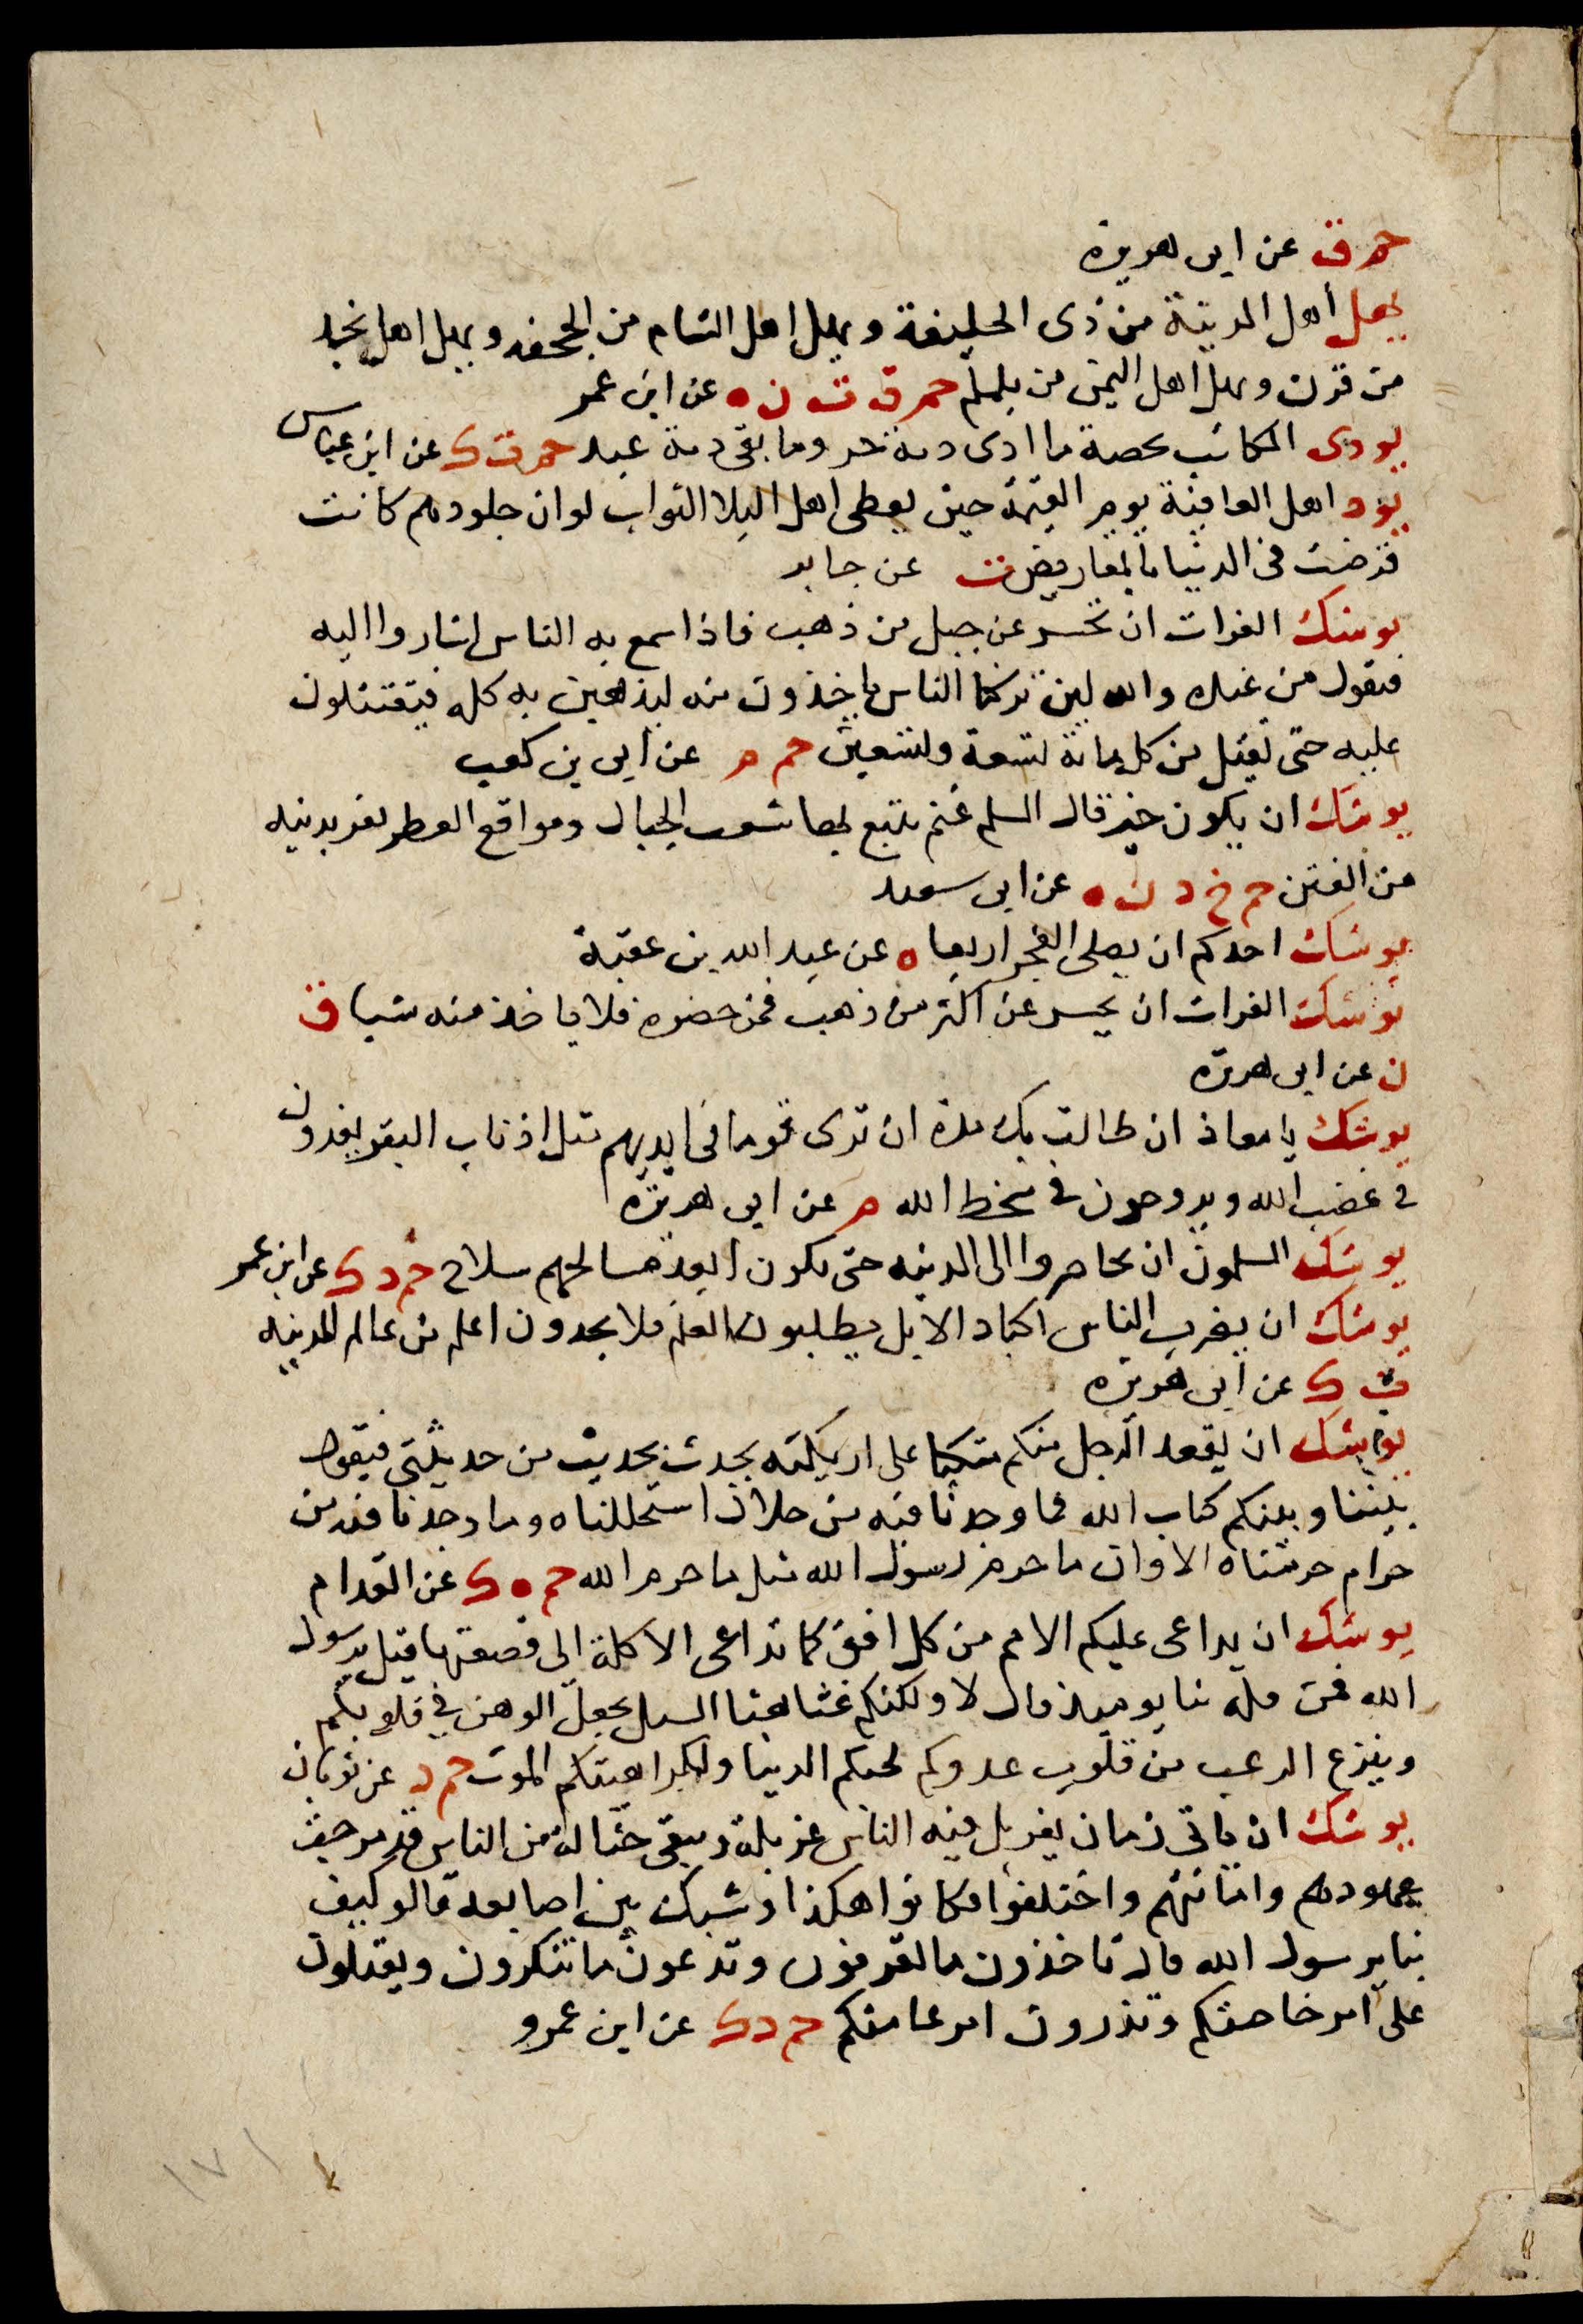 حم ق عن ابى هريرة
يهل أهل المدينة من ذى الحليفة ويهل اهل الشام من الجحفه ويهل اهل نجد
من قرن ويهل اهل اليمن من يلملم حم ق ت ن ه عن ابن عمر
يودى المكاتب بحصة ما ادى دية حر وما بقى دية عبد حم ت ك عن ابن عباس
يود اهل العافية يوم القيمة حين يعطى اهل البلا الثواب لو ان جلودهم كانت
قرضت فى الدنيا بالمقاريض ت عن جابر
يوشك الفرات ان تحسر عن جبل من ذهب فاذا سمع به الناس اشاروا اليه
فيقول من عنده والله لين تركنا الناس ياخذون منه ليذهبن به كله فيقتتلون
عليه حتى يقتل من كل ماية تسعة وتسعين حم م عن ابى بن كعب
يوشك ان يكون خير مال المسلم غنم يتبع بها شعب الجبال ومواقع القطر يفر بدينه
من الفتن حم خ د ن ه عن ابى سعيد
يوشك احدكم ان يصلى الفجر اربعا ه عن عبد الله بن عقبة
يوشك الفرات ان يحسر عن اكثر من ذهب فمن حضره فلا ياخذ منه شيا ق
ن عن ابى هريرة
يوشك يا معاذ ان طالت بك مدة ان ترى قوما فى ايديهم مثل اذناب البقر يغدون
فى غضب الله ويروحون فى سخط الله م عن ابى هريرة
يوشك المسلمون ان يحاصروا الى المدينه حتى يكون ابعد مسالحهم سلاح حم د ك عن ابن عمر
يوشك ان يضرب الناس اكباد الابل يطلبون العلم فلا يجدون اعلم من عالم المدينه
ت ك عن ابى هريرة
يوشك ان يقعد الرجل منكم متكيا على اريكته يحدث بحديث من حديثى فيقول
بيننا وبينكم كتاب الله فما وجدنا فيه من حلال استحللناه وما وجدنا فيه من
حرام حرمناه الا وان ما حرم رسول الله مثل ما حرم الله حم ه ك عن المقدام
يوشك ان يداعى عليكم الامم من كل افق كما تداعى الاكلة الى قصعتها قيل يرسول
الله فمن قله بنا يوميذ قال لا ولكنكم غثا كغثا السيل يجعل الوهن فى قلوبكم
وينزع الرعب من قلوب عدوكم لحبكم الدنيا ولكراهيتكم الموت حم د عن ثوبان
يوشك ان ياتى زمان يغربل فيه الناس غربلة ويبقى حثالة من الناس قد مرجت
عهودهم واماناتهم واختلفوا فكانوا هكذا وشبك بين اصابعه قالو كيف
بنا يرسول الله قال تاخذون ما تعرفون وتدعون ما تنكرون ويقبلون
على امر خاصتكم وتذرون امر عامتكم حم د ك عن ابن عمرو
١٧١